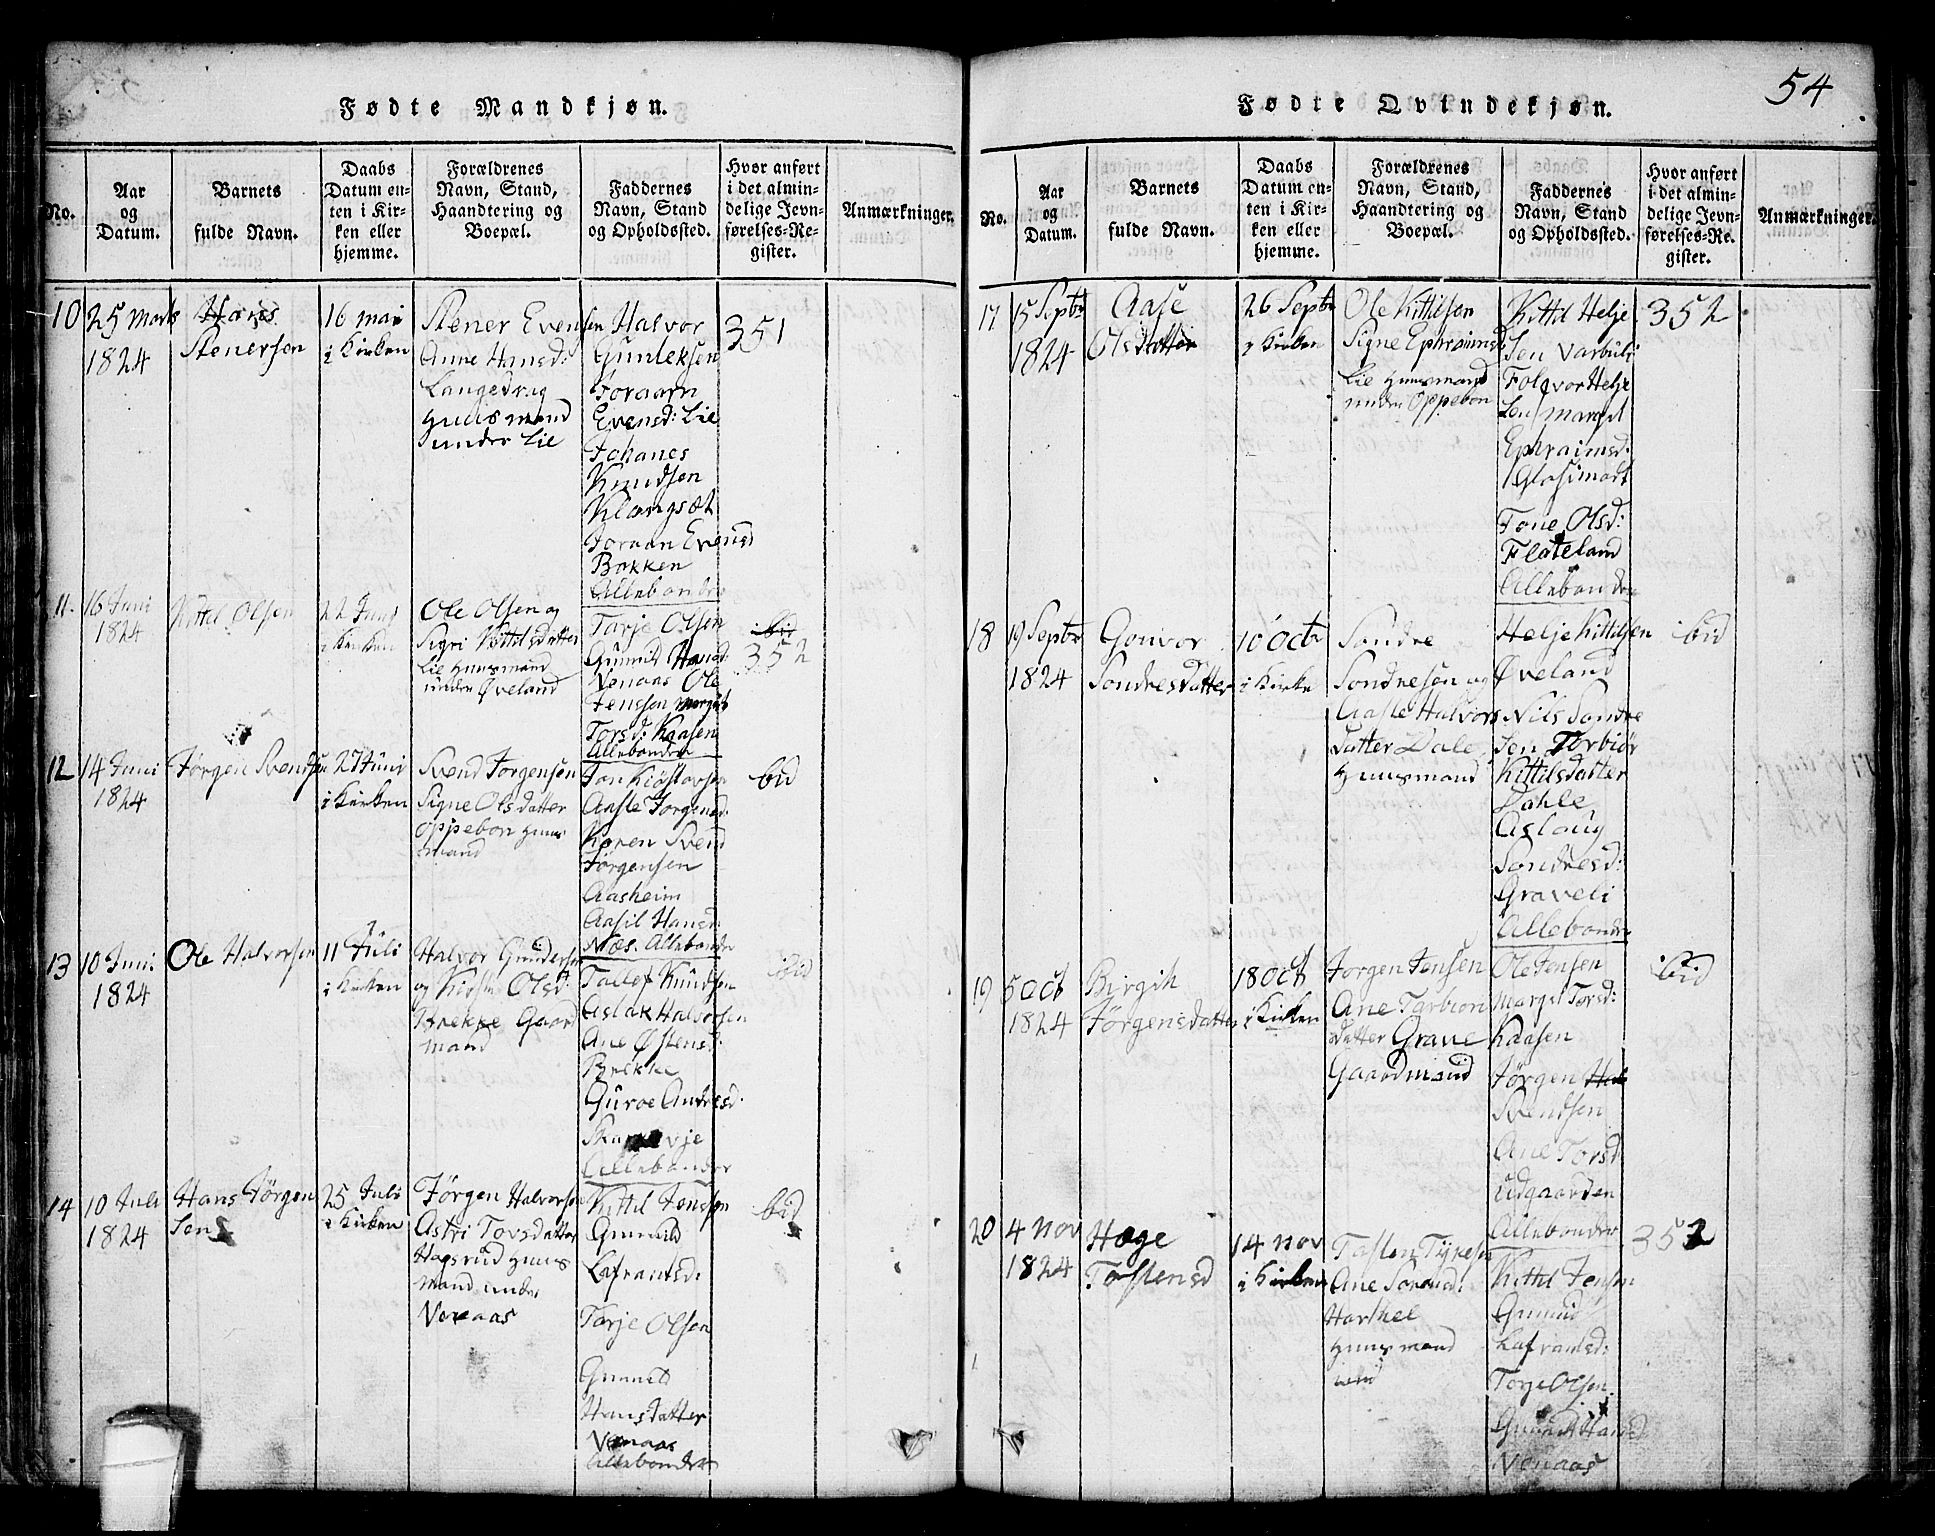 54
Fødte Mandkjøn.
No.
Aar
og
Datum.
Barnets
fulde Navn.
Daabs
Datum en-
ten i Kir-
ken eller
hjemme.
Forældrenes
Navn, Stand,
Haandtering og
Boepæl.
Faddernes
Navn, Stand
og Opholdssted.
Hvor anført
i det almin-
delige Jevn-
førelses-Re-
gister.
Anmærkninger.
10
25 Marts
1824
Hans
Stenersen
16 mai
i Kirken
Stener Evensen
Anne Hansd:
Langedrag
Huusmand
under Lie
Halvor
Gunleksen
Joraarn
Evensd: Lie
Johanes
Knudsen
Klangsæt
Joraan Evensd
Bakken
Allebønder
351
11.
16 Juni
1824
Kittil Olsen
22 Juni
i Kirken
Ole Olsen og
Sigri Kittilsdatter
Lie Huusmand
under Øveland
Tarje Olsen
Gunnild Hansd
Venaas Ole
Jenssen Margit
Torsd: Kaasen
Allebønder
ibid
352
12
14 Juni
1824
Jørgen Svendsen
27 Juni
i Kirken
Svend Jorgensen
Signe Olsdatter
Oppebøn Huus
mand
Jon Kiøstovsen
Aasle Jorgensd.
Karen Svend
Jørgensen
Aasheim
Aasil Hansd.
Næs. Allebønder
ibid
13
10 Juni.
1824
Ole Halvorsen
11 Juli
i Kirken
Halvor Gundersen
og Kirstie Olsd:
Brekke Gaard
mand
Tallef Knudsen
Aslak Halvorsen
Ane Østensd:
Brekke
Guroe Andresd.
Allebønder
ibid
14
10 Juli
1824
Hans Jørgen
Sen
25 Juli
i Kirken
Jørgen Halvorsen
Astri Torsdatter
Hagsrud Huus
mand under
Venaas
Kittil Jenssen
Gunnild
Lafrantsd:
Tarje Olsen
Gunnild
Hansdatter
Venaas
Allebønder
ibid
Fødte Qvindekjøn.
No.
Aar
og
Datum.
Barnets
fulde Navn.
Daabs
Datum en-
ten i Kir-
ken eller
hjemme.
Forældrenes
Navn, Stand,
Haandtering og
Boepæl.
Faddernes
Navn, Stand
og Opholdssted.
Hvor anført
i det almin-
delige Jevn-
førelses-Re-
gister.
Anmærkninger.
17
15 Septbr
1824
Aase
Olsdatter
26 Septbr
i Kirken
Ole Kittilsen
Signe Ephraimsd
Lie Huusmand
under Oppebøn
Kittil Helje
Sen Varbuli
Folqvor Helje
Sen Margit
Ephraimsd:
Tone Olsd:
Flateland
Allebønder
352
18
19 Septbr
1824
Gonvor
Sondresdatter
10 Octr
i Kirke
Sondre
Sondresen og
Aasle Halvors
Datter Dale
Huusmand
Helje Kittilsen
Øveland
Nils Sondre
Sen Torbiør
Kittilsdatter
Dahle
Aslaug
Sondresd:
Graveli
Allebønder
ibid
19
5 Oct
1824
Birgit
Jørgensdatter
18 Oct
i Kirken
Jorgen Jensen
Ane Torbiørn
datter Grave
Gaardmand
Ole Jensen
Margit Torsd:
Kaasen
Jørgen Hal
Svendsen
Ane Torsd
udgaarden
Allebønder
ibid
20
4 Nov
1824
Hæge
Tostensd
14 Nov
i Kirken
Tosten Tyresen
Ane
Huusmand
Kittil Jensen
Gunnild
Lafrantsd:
Torje Olsen
Gunnild Hansd
Venaas
352